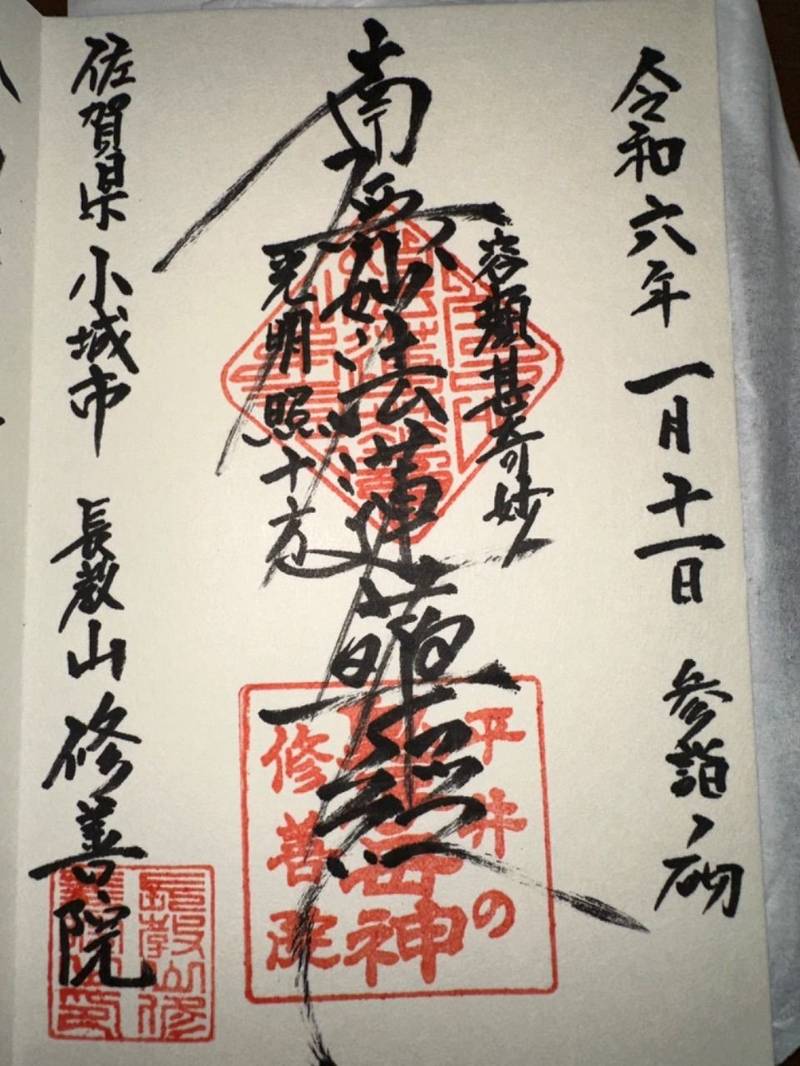 令和六年一月十一日 参詣ノ砌
容顔甚奇妙
南無妙法蓮華経
光明照十方
佐賀県小城市 長教山修善院
平井の
神
修善院
長教山修